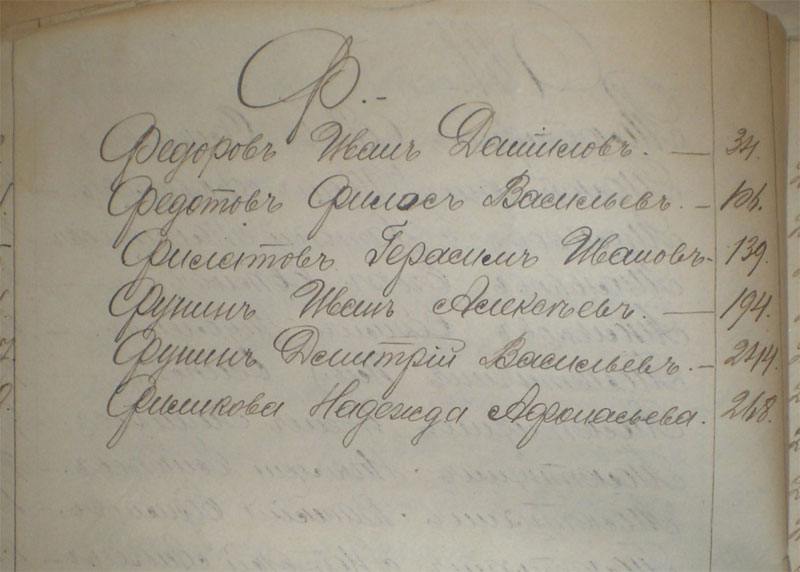 Ф.
Федоровъ Иванъ Даниловъ. — 34.
Федотовъ Филосъ Васильевъ. — 106.
Филитовъ Герасимъ Ивановъ - 139.
Фунинъ Иванъ Алексѣевъ. — 194.
Фунинъ Дмитрій Васильевъ. — 244.
Филикова Надежда Афонасьева. 268.